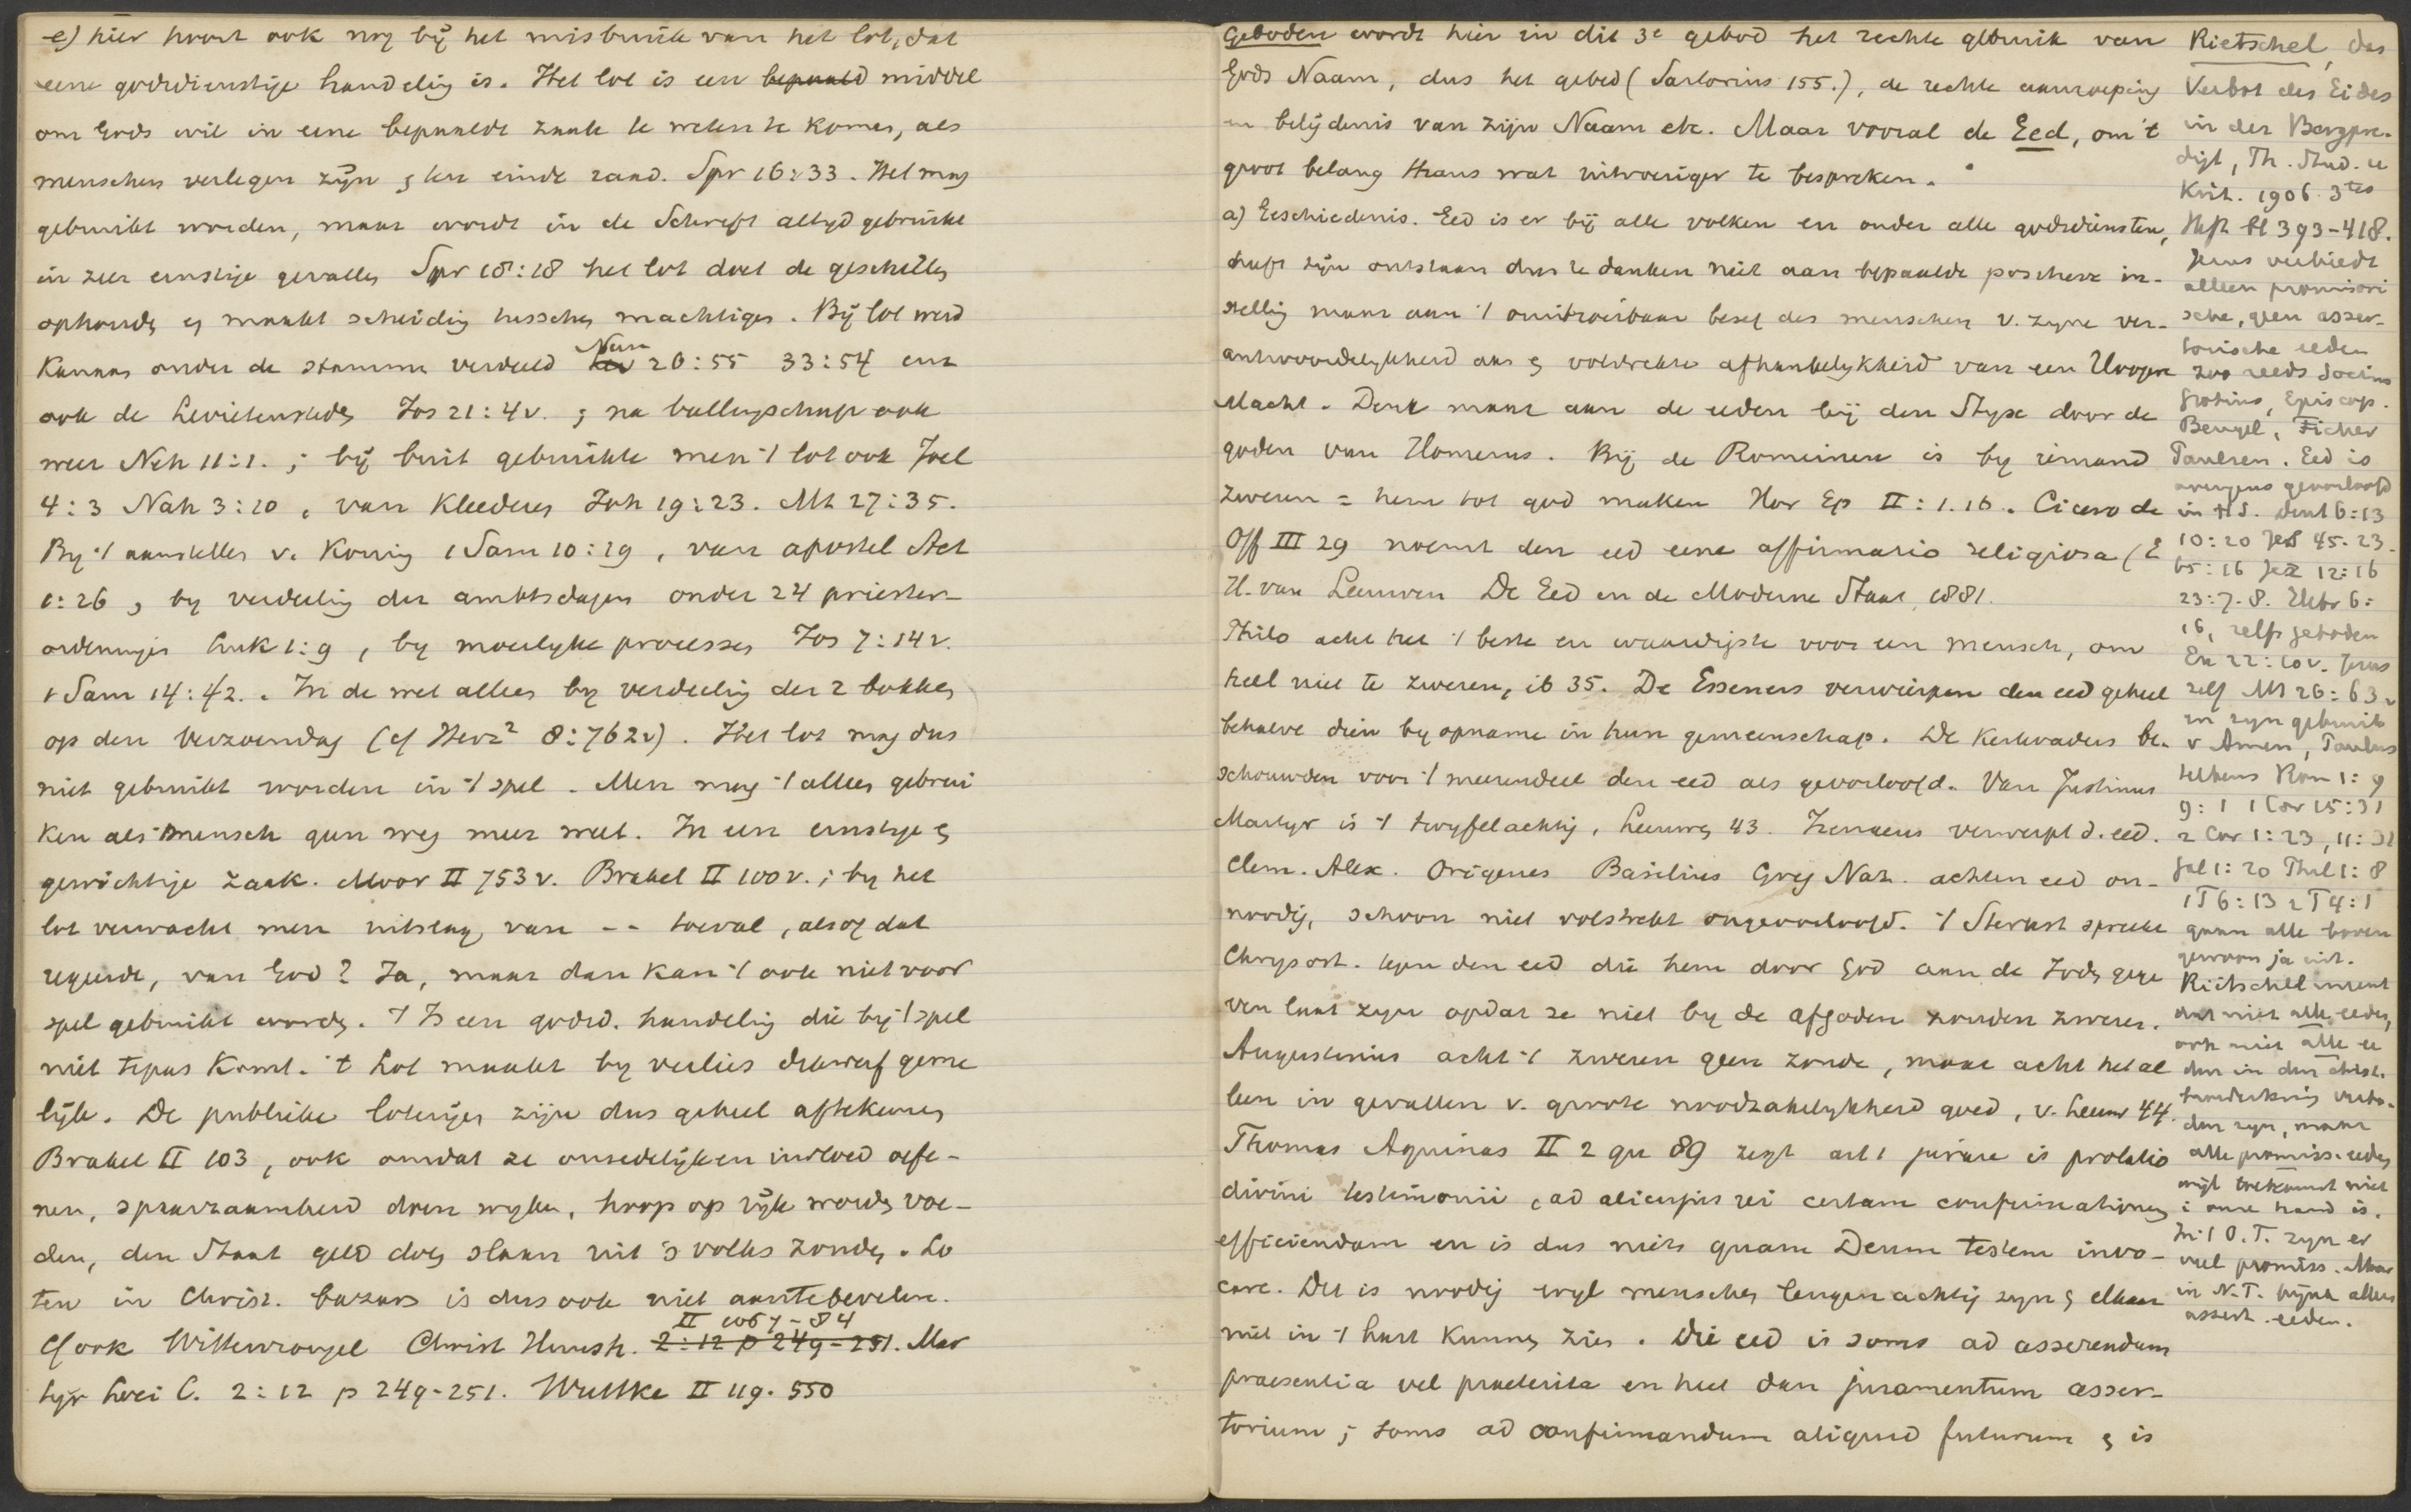 e) hier hoort ook nog bij het misbruik van het lot, dat
eene godsdienstige handeling is. Het lot is een bepaald middel
om Gods wil in eene bepaalde zaak te weten te komen, als
menschen verlegen zijn & ten einde raad. Spr 16:33. Het mag
gebruikt worden, maar wordt in de Schrift altyd gebruikt
in zeer ernstige gevallen Spr 18:18 het lot doet de geschillen
ophouden en maakt scheiding tusschen machtigen. Bij lot werd
Kanaan onder de stammen verdeeld Lev Num 26:55 33:54 enz
ook de Levietensteden Jos 21:4v. ; na ballingschap ook
weer Neh 11:1. ; bij buit gebruikte men 't lot ook Joel
4:3 Nah 3:10, van kleederen Joh 19:23. Mt 27:35.
By 't aanstellen v. Koning 1 Sam 10:19, van apostel Act
1:26, by verdeeling der ambtsdagen onder 24 priester-
ordeningen Luk 1:9, by moeilyke processen Jos 7:14v.
1 Sam 14:42. In de wet alleen by verdeeling der 2 bokken
op den Verzoendag (cf Herz² 8:762v). Het lot mag dus
niet gebruikt worden in 't spel. Men mag 't alleen gebrui
ken als mensch geen weg meer weet. In een ernstige &
gewichtige zaak. Moor II 753v. Brakel II 100v. ; by het
lot verwacht men uitslag van -- toeval, alsof dat
regeerde, van God? Ja, maar dan kan 't ook niet voor
spel gebruikt worden. 't Is een godsd. handeling die bij 't spel
niet te pas komt. 't Lot maakt by verlies
lijk. De publieke loterijen zijn dus geheel aftekeuren
Brakel II 103, ook omdat ze onzedelijken invloed oefe-
nen, spaarzaamheid doen wyken, hoop op rijk worden voe-
den, den Staat geld doen slaan uit 's volks zonden. Lo
ten in Christ. bazars is dus ook niet aantebevelen.
Cf ook Wittewrongel Christ Huish. 2:12 p 249-251. II 1067-84 Mar
tyr Loci C. 2:12 p 249-251. Wuttke II 119. 550
Geboden wordt hier in dit 3e gebod het rechte gebruik van
Gods Naam, dus het gebed (Sartorius 155.), de rechte aanroeping
en belijdenis van zijn Naam etc. Maar vooral de Eed, om 't
groot belang thans wat uitvoeriger te bespreken.
a) Geschiedenis. Eed is er bij alle volken en onder alle godsdiensten,
heeft zijn ontstaan dus te danken niet aan bepaalde positieve in-
stelling maar aan 't onuitroeibaar besef des menschen v. zyne ver-
antwoordelykheid aan & volstrekte afhankelykheid van een Hoogere
Macht. Denk maar aan de eeden bij den Styx door de
goden van Homerus. Bij de Romeinen is by iemand
zweren = hem tot god maken Hor Ep II:1.16. Cicero de
Off III 29 noemt den eed eene affirmatio religiosa (E
H. van Leeuwen De Eed en de Moderne Staat, 1881.
Philo acht het 't beste en waardigste voor een mensch, om
heel niet te zweren, ib 35. De Esseners verwierpen den eed geheel
behalve dien by opname in hun gemeenschap. De Kerkvaders be-
schouwden voor 't meerendeel den eed als geoorloofd. Van Justinus
Martyr is 't twyfelachtig, Leeuwen 43. Irenaeus verwerpt d. eed.
Clem. Alex. Origenes Basilius Greg Naz. achten eed on-
noodig, schoon niet volstrekt ongeoorloofd. 't Sterkst spreekt
Chrysost. tegen den eed die hem door God aan de Joden gege
ven laat zyn opdat ze niet by de afgoden zouden zweren.
Augustinus acht 't zweren geen zonde, maar acht het al
leen in gevallen v. groote noodzakelykheid goed, v. Leeuw 44.
Thomas Aquinas II 2 qu 89 zegt art 1 jurare is prolatio
divini testimonii, ad alicujus rei certam confirmationem
efficiendam en is dus niets quam Deum testem invo-
care. Dit is noodig wyl menschen leugenachtig zyn & elkaar
niet in 't hart kunnen zien. Die eed is soms ad asserendum
praesentia vel praeterita en heet dan juramentum asser-
torium ; soms ad confirmandum aliquid futurum & is
Rietschel, das
Verbot des Eides
in der Bergpre-
digt, Th. Stud. u
Krit. 1906. 3tes
Heft bl 393-418.
Jezus verbiedt
alleen promissori
sche, geen asser-
torische eeden
zoo reeds Socinus
Grotius, Episcop.
Bengel, Ficker
Paulsen. Eed is
overigens geoorloofd
in H.S. Deut 6:13
10:20 Jes 45.23.
65:16 Jer 12:16
23:7.8. Hebr 6:
16, zelfs geboden
Ex 22:10v. Jezus
zelf Mt 26:63v
en zyn gebruik
v Amen, Paulus
telkens Rom 1:9
9:1 1 Cor 15:31
2 Cor 1:23, 11:31
Gal 1:20 Phil 1:8
1T 6:13 2T 4:1
gaan alle boven
gewoon ja uit.
Rietschel meent
dat niet alle eeden,
ook niet alle ee
den in den christ.
verbo-
den zyn, maar
alle promiss. eeden
wijl toekomst niet
i onze hand is.
In 't O.T. zyn er
veel promiss. Maar
in N.T. bijna alleen
assert. eeden.